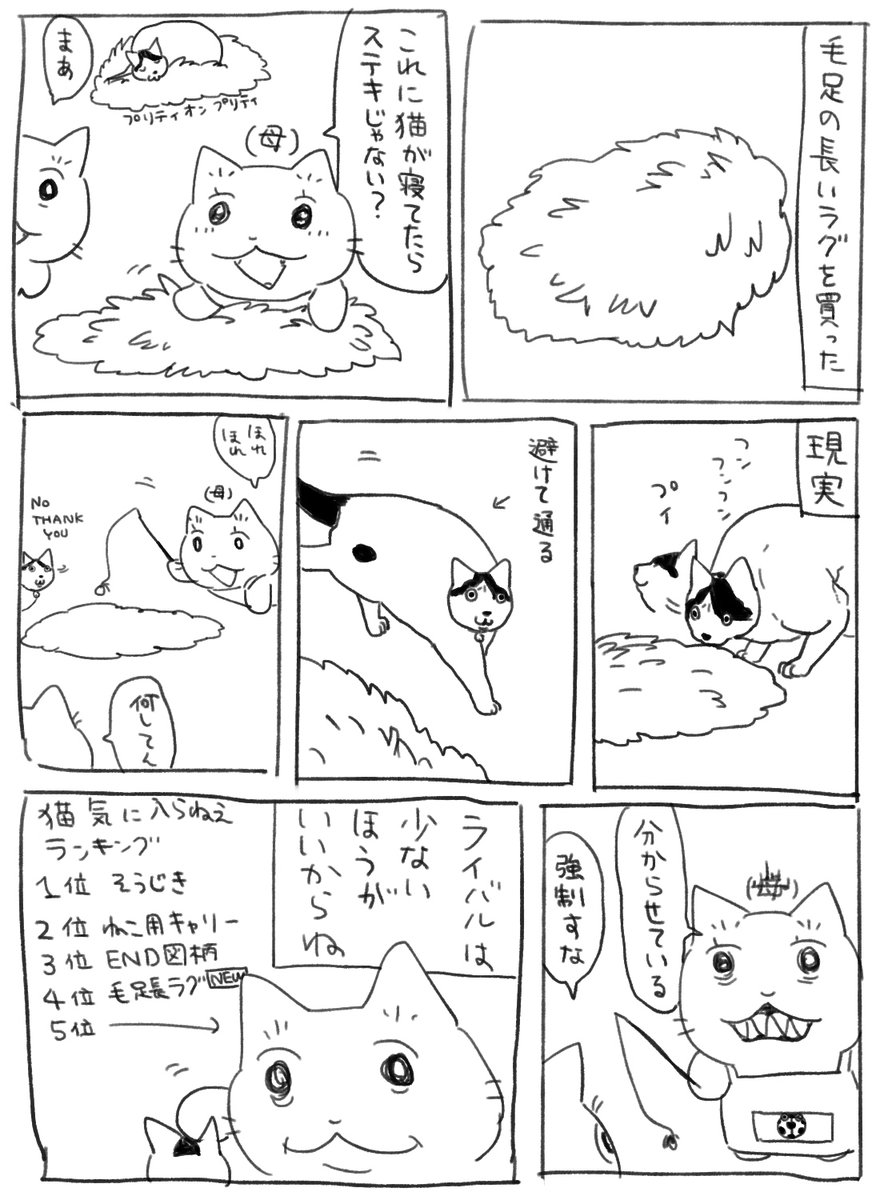 毛足の長いラグを買った
これに猫が寝てたら
ステキじゃない?
(母)
プリティオンプリティ
まぁ
現実
フンフンフン
プイ
避けて通る
ほれ
ほれ
(母)
NO
THANK
YOU
何してん
分からせている
(母)
強制すな
ライバルは
少ない
ほうが
いいからね
猫気に入らねえ
ランキング
1位 そうじき
2位 ねこ用キャリー
3位 END図柄
4位 毛足長ラグ NEW
5位